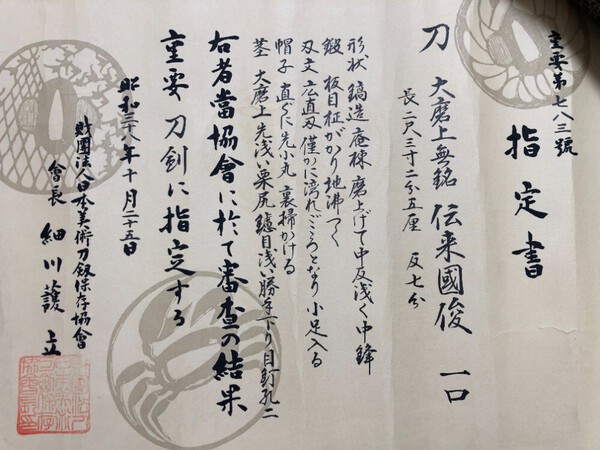 重要第七八三號
指定書
刀 大磨上無銘 伝来國俊 一口
長 二尺三寸二分五厘 反 七分
形状 鎬造 庵棟 磨上げて中反浅く中鋒
鍛 板目柾がかり地沸つく
刃文 広直刃僅かに湾れごころとなり小足入る
帽子 直ぐに先小丸 裏掃かける
茎 大磨上 先浅い栗尻 鑢目浅い勝手下り 目釘孔二
右者當協會に於て審査の結果
重要刀剣に指定する
昭和三十八年十月二十五日
財團法人日本美術刀剱保存協會
會長 細川護立